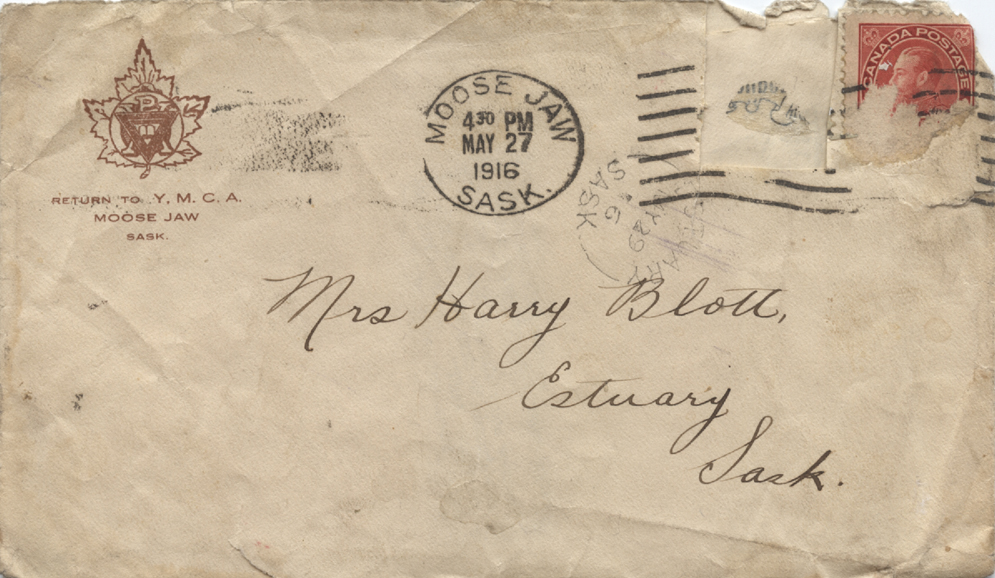 P
RETURN TO Y. M. C. A.
MOOSE JAW
SASK.
MOOSE JAW
4 30 PM
MAY 27
1916
SASK.
CANADA POSTAGE
SASK
Mrs Harry Blott,
Estuary
Sask.